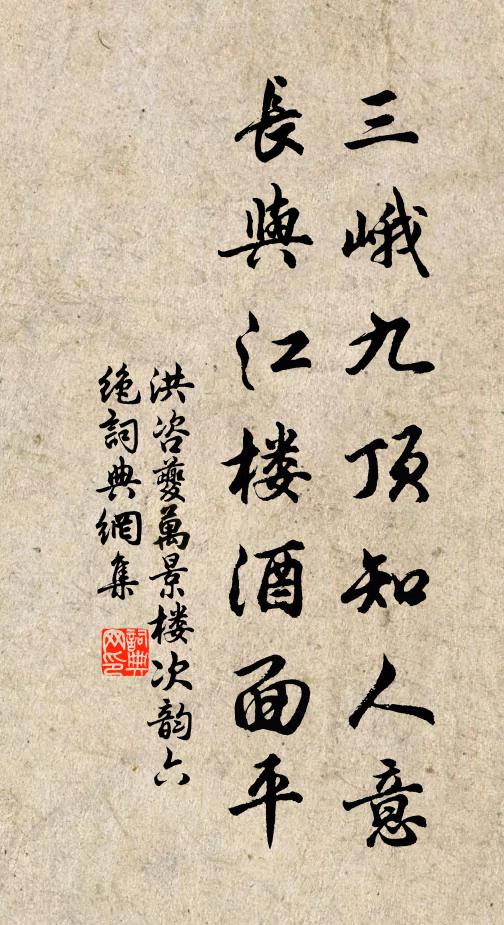 三峨九顶知人意
長與江楼酒面平
洪咨夔萬景楼次韵六
绝詞典網集
詞典
网印